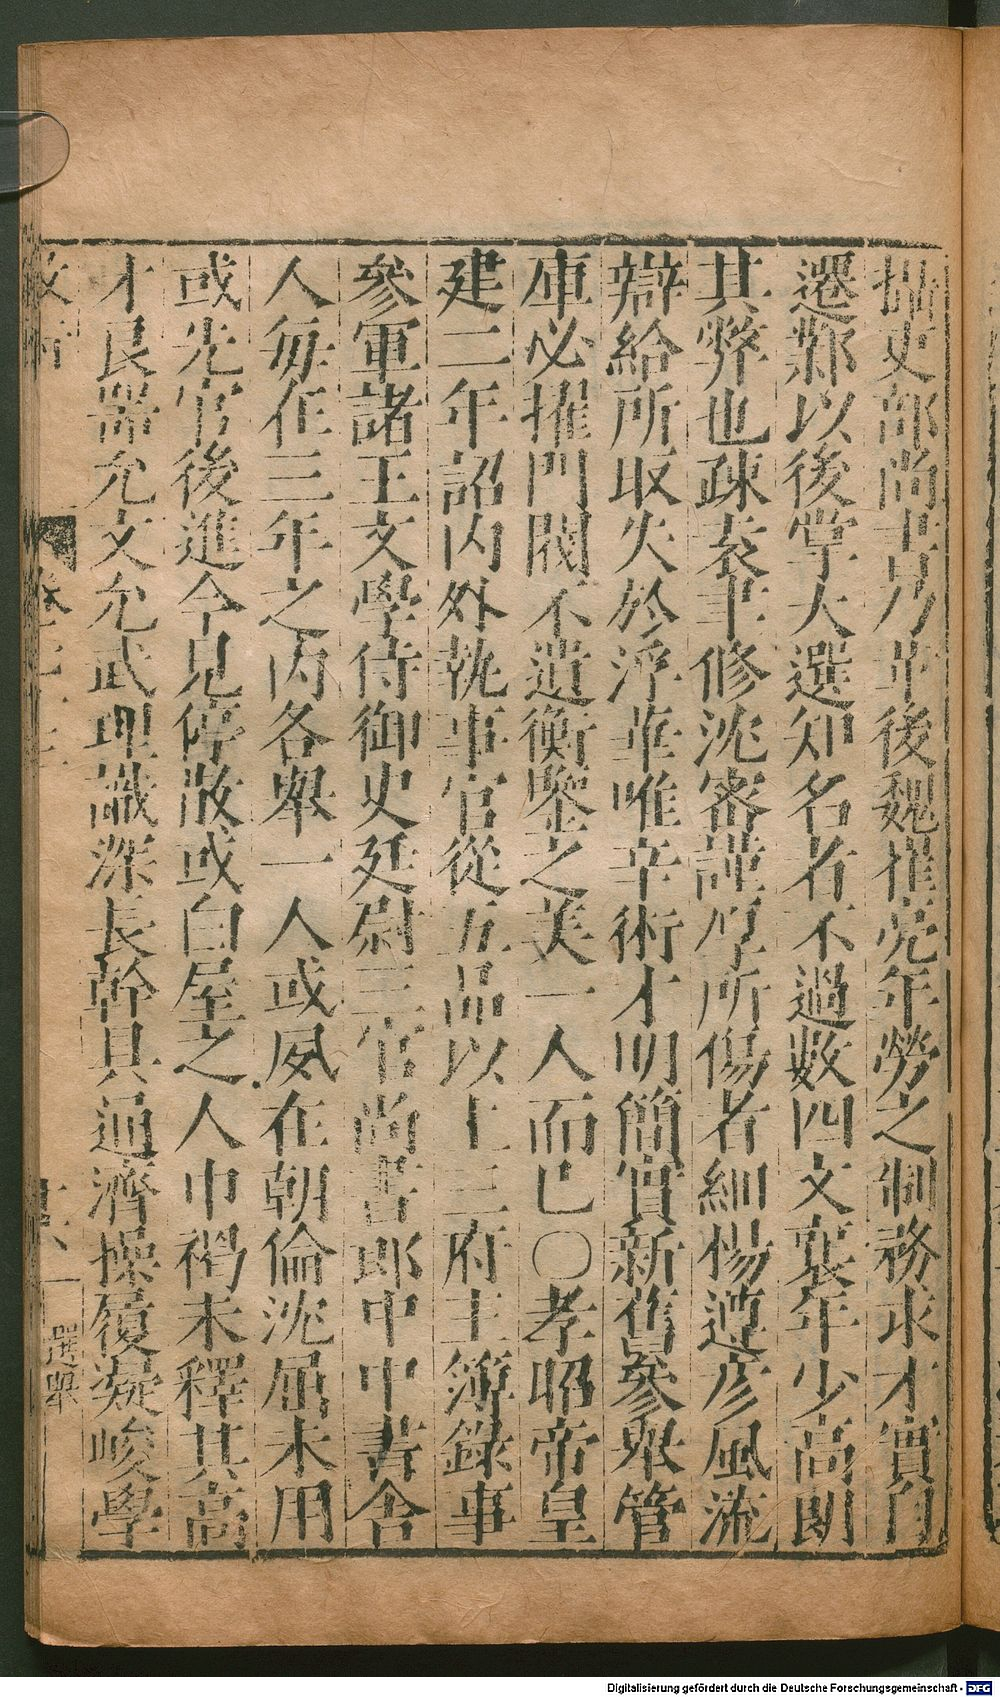 攝吏部尚書乃革後魏崔亮年勞之制務求才實自
遷鄴以後掌大選知名者不過數四文襄年少高朗
其弊也疎袁聿修沈密謹厚所傷者細楊遵彥風流
辯給所取失於浮華唯辛術才明簡實新舊參舉管
庫必擢門閥不遺衡鑒之美一人而已〇孝昭帝皇
建二年詔內外執事官從五品以上三府主簿錄事
參軍諸王文學侍御史廷尉三官尚書郎中中書舍
人每在三年之內各舉一人或夙在朝倫沈屈未用
或先官後進今見停散或白屋之人巾褐未釋其高
才良器允文允武理識深長幹具通濟操履凝峻學
選舉
Digitalisierung gefördert durch die Deutsche Forschungsgemeinschaft - DFG